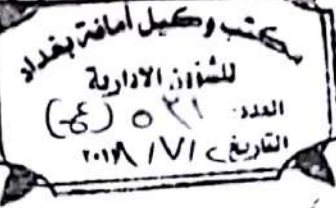 مكتب وكيل أمانة بغداد
للشؤون الادارية
العدد:
التاريخ ٢ / ٧ / ٢٠١٨